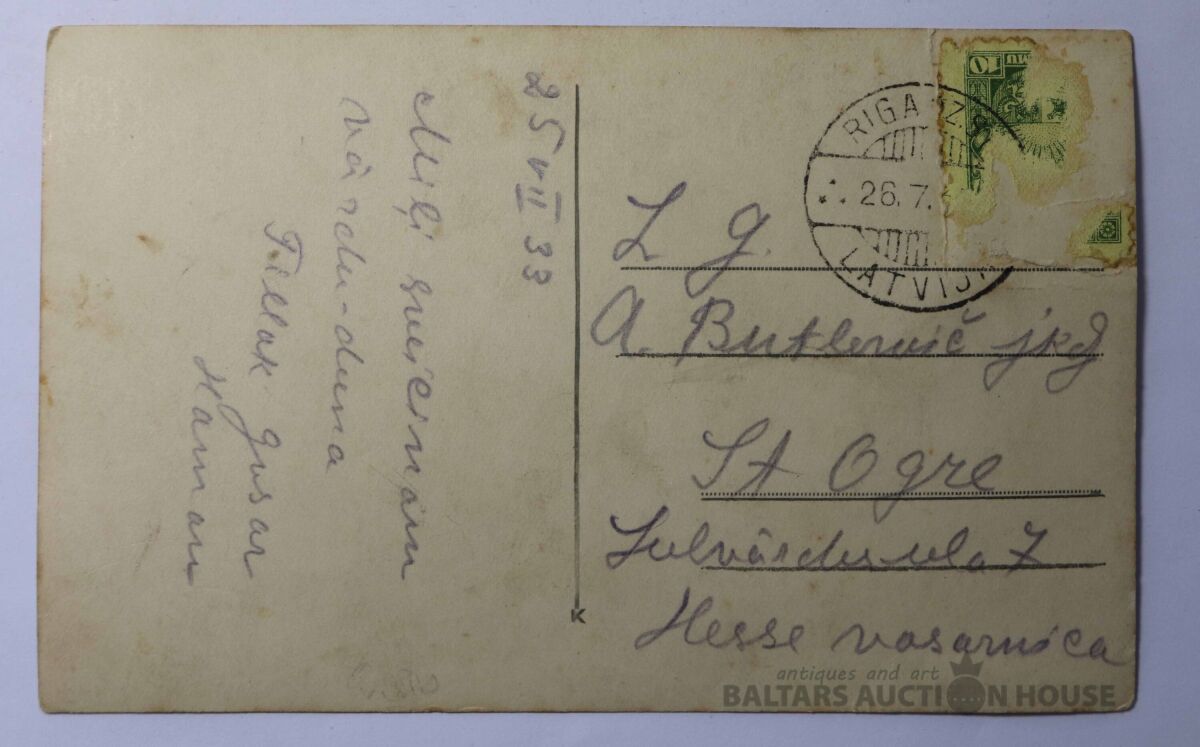 25 VII 33
Mīļi sveicinam
vārdu-dienā
Hamam
RIGA
26.7.
LATVIJA
10
L g.
A. Butlevič jkg
St Ogre
Lielvārdu iela 7
Hesse vasarnica
K
antiques and art
BALTARS AUCTION HOUSE